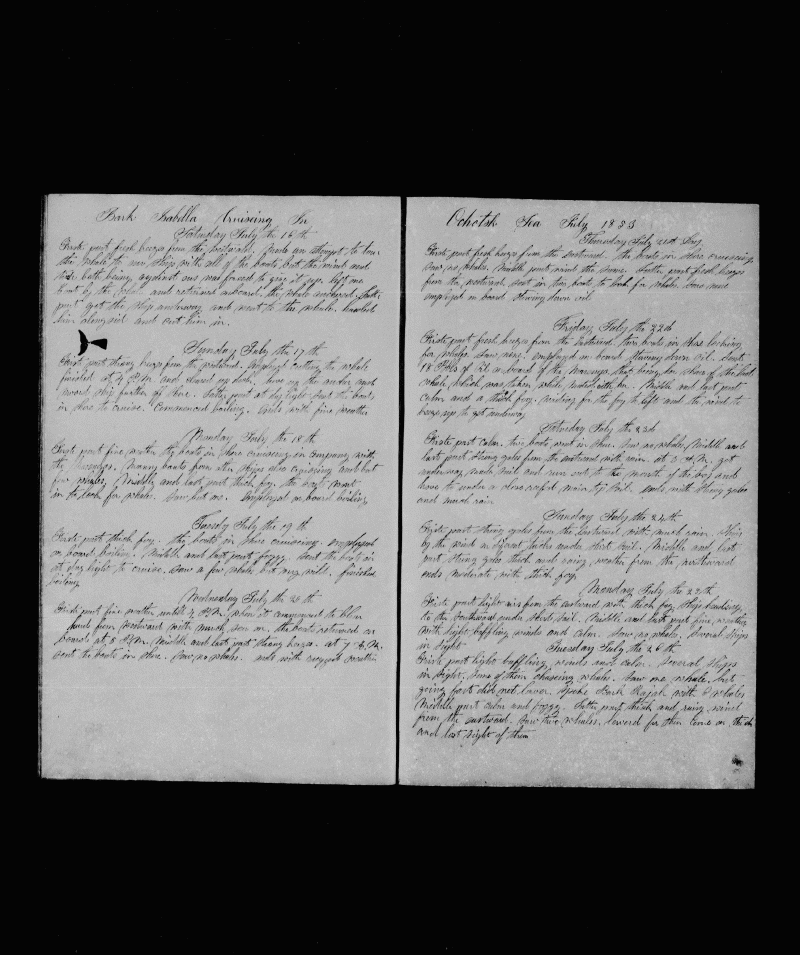 Bark Isabella Cruiseing In
Saturday July the 16 th
First part fresh breeze from the westward. Made an attempt to tow
the whale to our ship, with all of the boats, but the wind and
tide both being against us was forced to give it up. left one
boat by the whale and returned aboard, the whale anchored. Latter
part got the ship underway and went to the whale. hawled
him alongside and cut him in.
Sunday July the 17 th
First part strong breeze from the westward. Employed cutting the whale
finished at 4 P.M and cleared up deck. hove up the anchor and
worked ship further off shore. Latter part at day light sent the boats
in shore to cruise. Commenced boiling. Ends with fine weather
Monday July the 18 th
First part fine weather the boats in shore cruiseing in company with
the Many boats from other ships also cruiseing and but
few whales. Middle and last part thick fog. the boats went
in to look for whales. Saw but one. Employed on board boiling
Tuesday July the 19 th
First part thick fog. the boats in shore cruiseing. Employed
on board boiling. Middle and last part foggy. Sent the boats in
at day light to cruise. Saw a few whales but very wild. finished
boiling
Wednesday July the 20 th
First part fine weather untill P.M. when it commenced to blow
from westward with much sea on. the boats returned on
board at 8 P.M. Middle and last part strong breeze. at 7 A.M.
sent the boats in shore. Saw no whales. ends with rugged weather
Ochotsk Sea July 1853
Thursday July 21st
First part fresh breeze from the westward. the boats in shore cruiseing.
Saw no whales. Middle part wind the same. Latter part fresh breeze
from the westward sent in two boats to look for whales. Saw none
employed on board stowing down oil
Friday July the 22d
First part fresh breeze from the westward. two boats in shore looking
for whales. Saw none. employed on board stowing down oil. Sent
18 Bbls of oil on board of the they being her share of the last
whale which was taken while mated with her. Middle and last part
calm and a thick fog. waiting for the fog to lift and the wind to
breeze up to get underway
Saturday July the 23d
First part calm. two boats went in shore. Saw no whales. Middle and
last part strong gales from the eastward with rain. at 3 A.M. got
underway made sail and run out to the mouth of the bay and
hove to under a close reefed main top sail. ends with strong gales
and much rain
Sunday July the 24 th
First part strong gales from the Eastward with much rain. Ship
by the wind on different tacks under short sail. Middle and last
part strong gales thick and rainy weather from the northward
ends moderate with thick fog
Monday July the 25 th
First part light airs from the eastward with thick fog. Ship heading
to the Southward under short sail. Middle and last part fine weather
with light baffling winds and calm. Saw no whales. Several ships
in sight
Tuesday July the 26 th
First part light baffling winds and calm. Several ships
in sight, some of them chaseing whales. Saw one whale, but
going fast did not lower. Spoke Bark Rajah with 3 whales
Middle part calm and foggy. Latter part thick and rainy wind
from the eastward. Saw two whales, lowerd for them
and lost sight of them